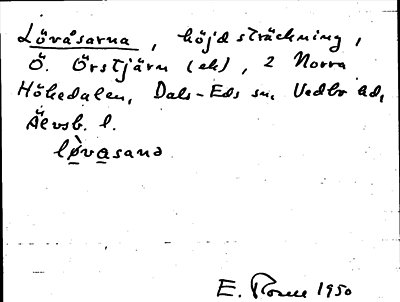 Lövåsarna, höjdsträckning,
Ö. Örstjärn (ek), 2 Norra
Hökedalen, Dals-Eds sn, Vedbo hd,
Älvsb. l.
lø̀vasana
E. 1950